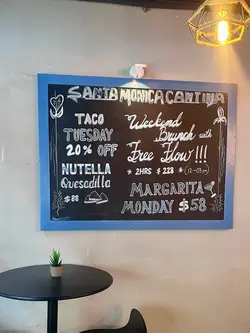 SANTA MONICA CANTINA
TACO
TUESDAY
20% OFF
NUTELLA
Quesadilla
$88
Weekend
Brunch with
Free Flow!!!
* 2HRS * $228 * (12-03PM)
MARGARITA
MONDAY $58